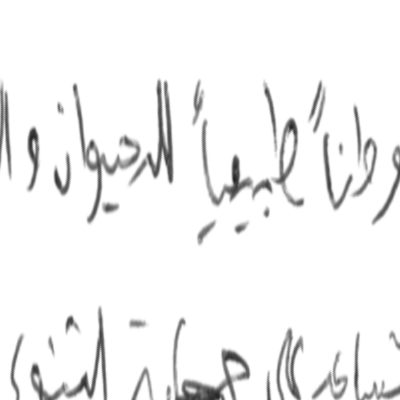 وطناً طبيعياً للحيوان وال
تساعد على حماية التنوع